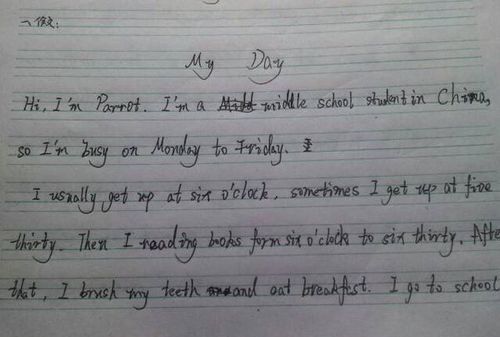 一.作文:
My Day
Hi, I'm Parrot. I'm a middle school student in China,
so I'm busy on Monday to Friday.
I usually get up at six o'clock, sometimes I get up at five
thirty. Then I reading books form six o'clock to six thirty. Afte
that, I brush my teeth and eat breakfast. I go to school